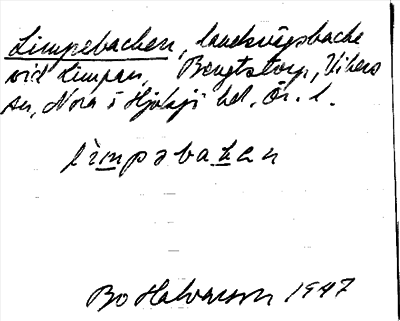 Limpebacken, landsvägsbacke
vid Limpan, Bengtstorp, Vikers
sn, Nora o Hjulsjö hd. Ör. l.
lìmpəbakən
Bo Halvarson 1947